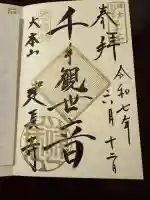 奉拝
令和七年
六月十二日
千手観世音
大本山
建長寺